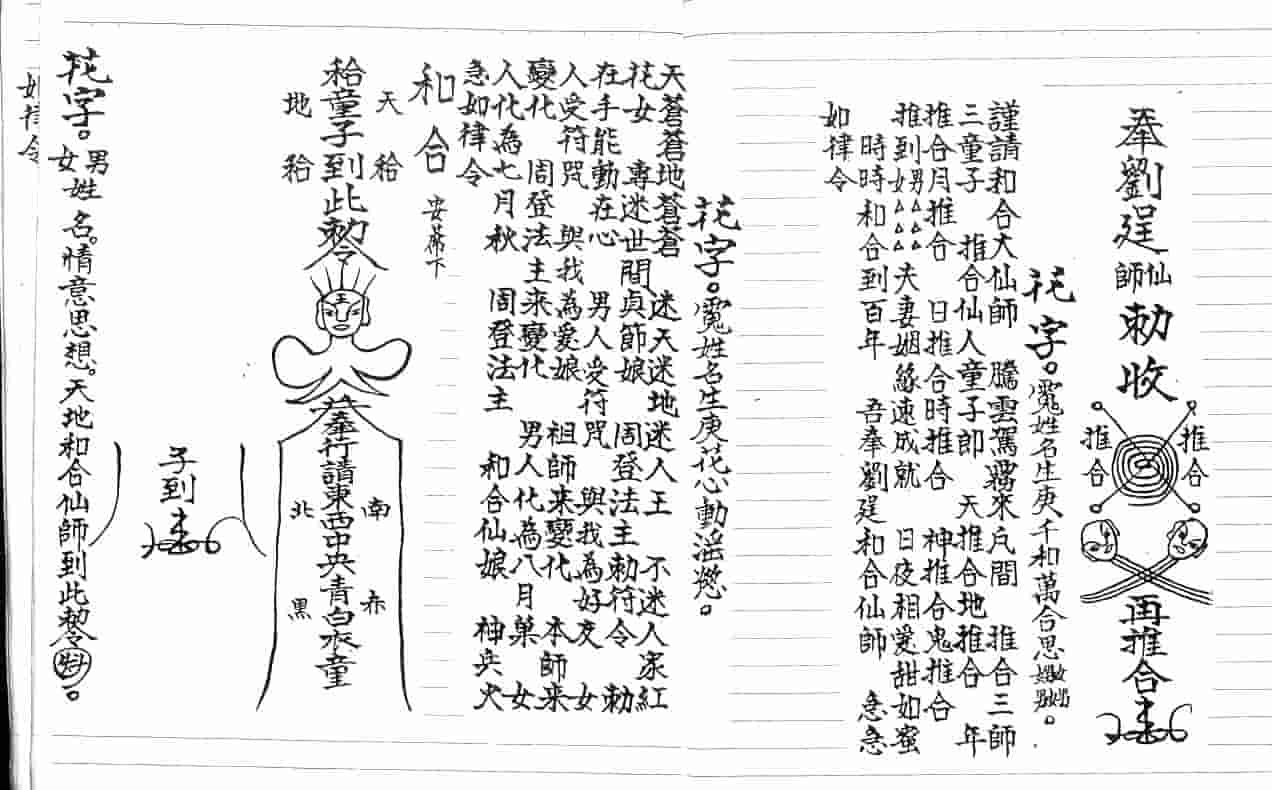 奉劉珵仙師勅收
推合
推合
再推合
花字。冤姓名生庚千和萬合思
謹請和合大仙師 騰雲駕霧來凡間 推合三師
三童子 推合仙人童子郎 天推合地推合 年
推合月推合 日推合時推合 神推合鬼推合
推到男女△△△ 夫妻姻緣速成就 日夜相愛甜如蜜
時時和合到百年 吾奉劉珵和合仙師 急急
如律令
花字。冤姓名生庚花心動淫慾。
天蒼蒼地蒼蒼 迷天迷地迷人王 不迷人家紅
花女 專迷世間貞節娘 周登法主勅符令 勅
在手能動在心 男人受符咒 與我為好交 女
人受符咒 與我為愛娘 祖師來變化 本師來
變化 周登法主來變化 男人化為八月菓 女
人化為七月秋 周登法主 和合仙娘 神兵火
急如律令
和合 安蓆下
天秴
秴童子到此勅令
地秴
王
奉行請東西中央青白衣童
南 赤
北 黑
子到
花字。男女姓名。情意思想。天地和合仙師到此勅令。
如律令